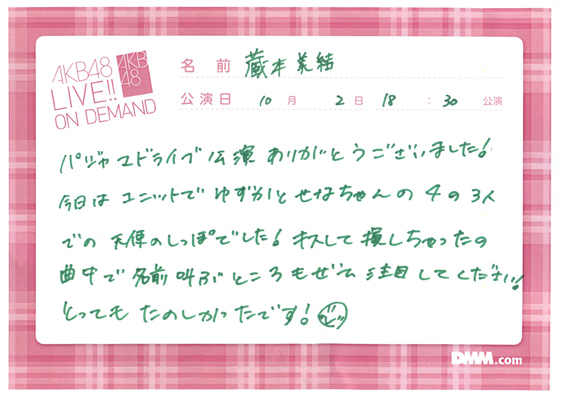 AKB48
LIVE!!
ON DEMAND
AKB
48
名前 蔵本美結
公演日 10月 2日 18:30 公演
パジャマドライブ公演ありがとうございました!
今日はユニットでゆずかとせなちゃんの4の3人
での天使のしっぽでした!キスして損しちゃったの
曲中で名前叫ぶところもぜひ注目してください!
とってもたのしかったです!
DMM.com